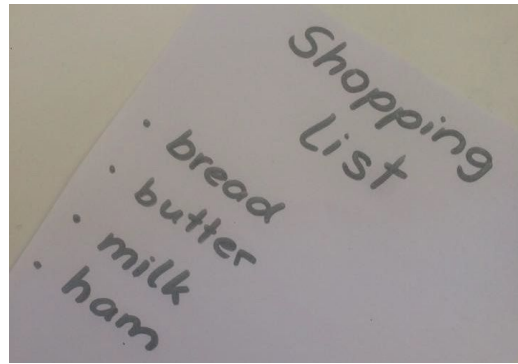 Shopping
List
• bread
• butter
• milk
• ham